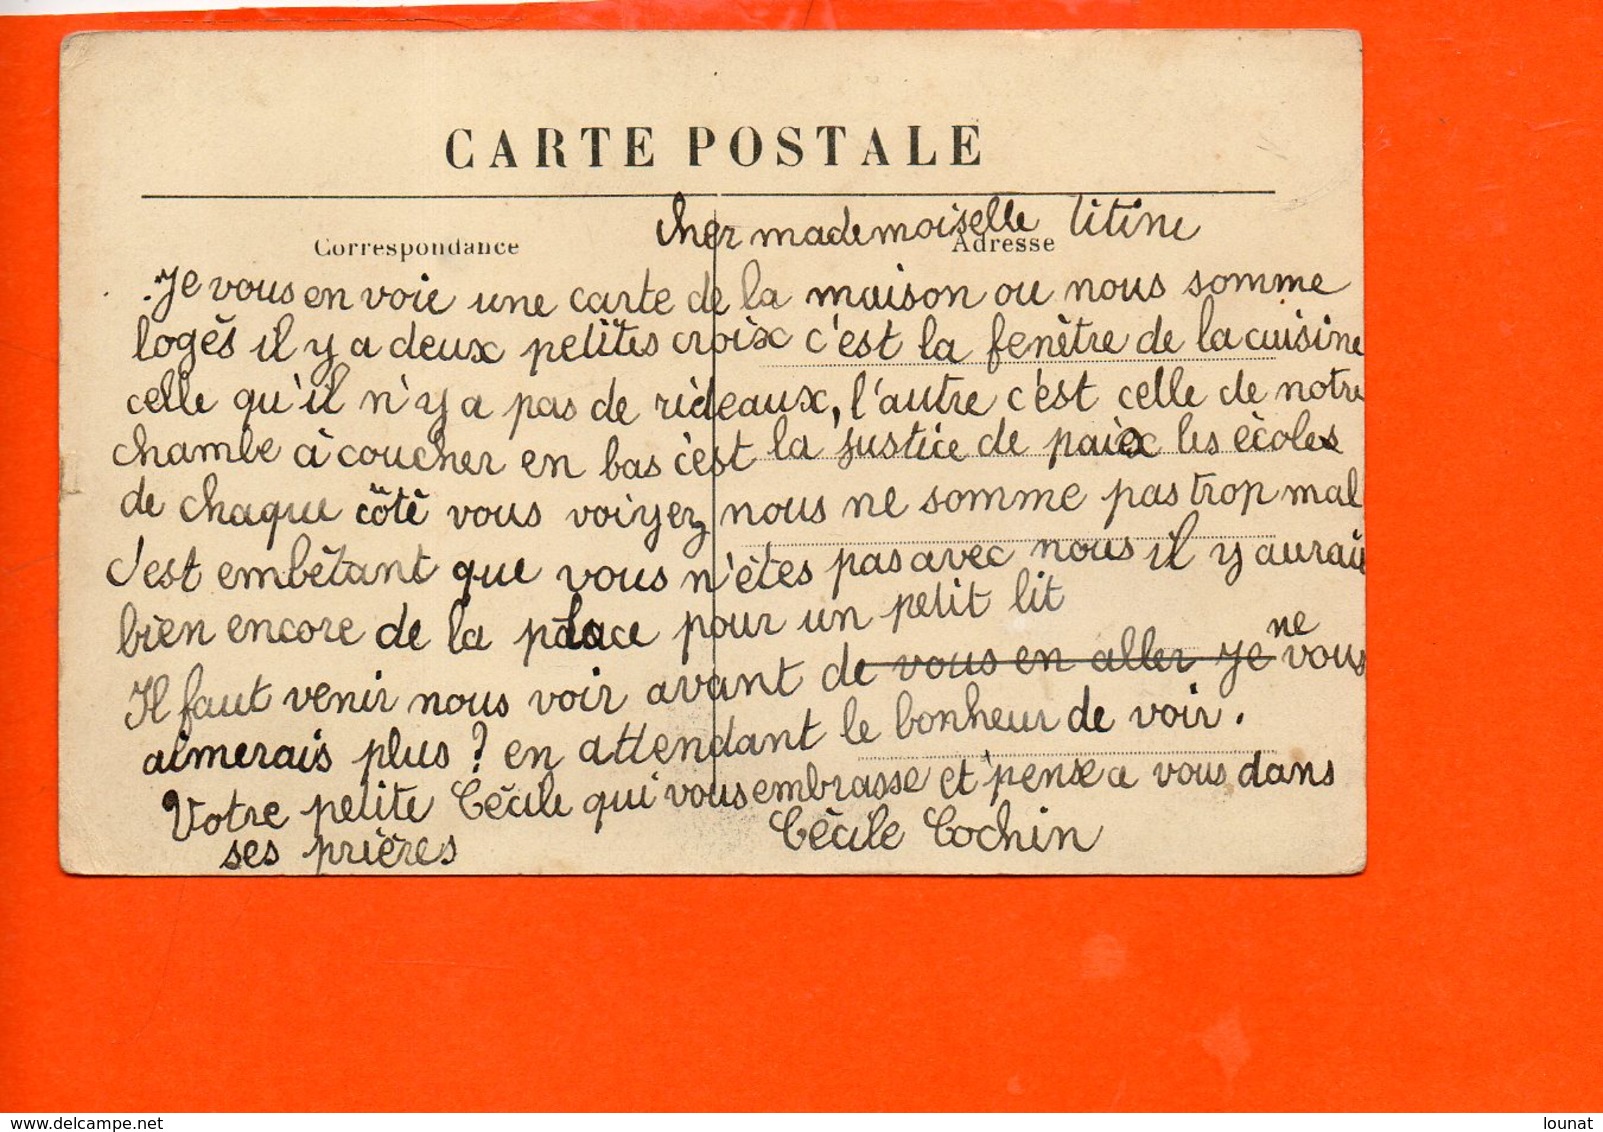 CARTE POSTALE
Correspondance
Adresse
cher mademoiselle titine
Je vous en voie une carte de la maison ou nous somme
logés il y a deux petites croix c'est la fenêtre de la cuisine
celle qu'il n'y a pas de rideaux, l'autre c'est celle de notre
chambe à coucher en bas c'est la justice de paiex les écoles
de chaque côté vous voiyez nous ne somme pas trop mal
c'est embêtant que vous n'êtes pas avec nous il y aurait
bien encore de la place pour un petit lit
Il faut venir nous voir avant de vous en aller je ne vous
aimerais plus ? en attendant le bonheur de voir.
Votre petite Cécile qui vous embrasse et pense a vous dans
ses prières Cécile Cochin
delcampe.net
lounat